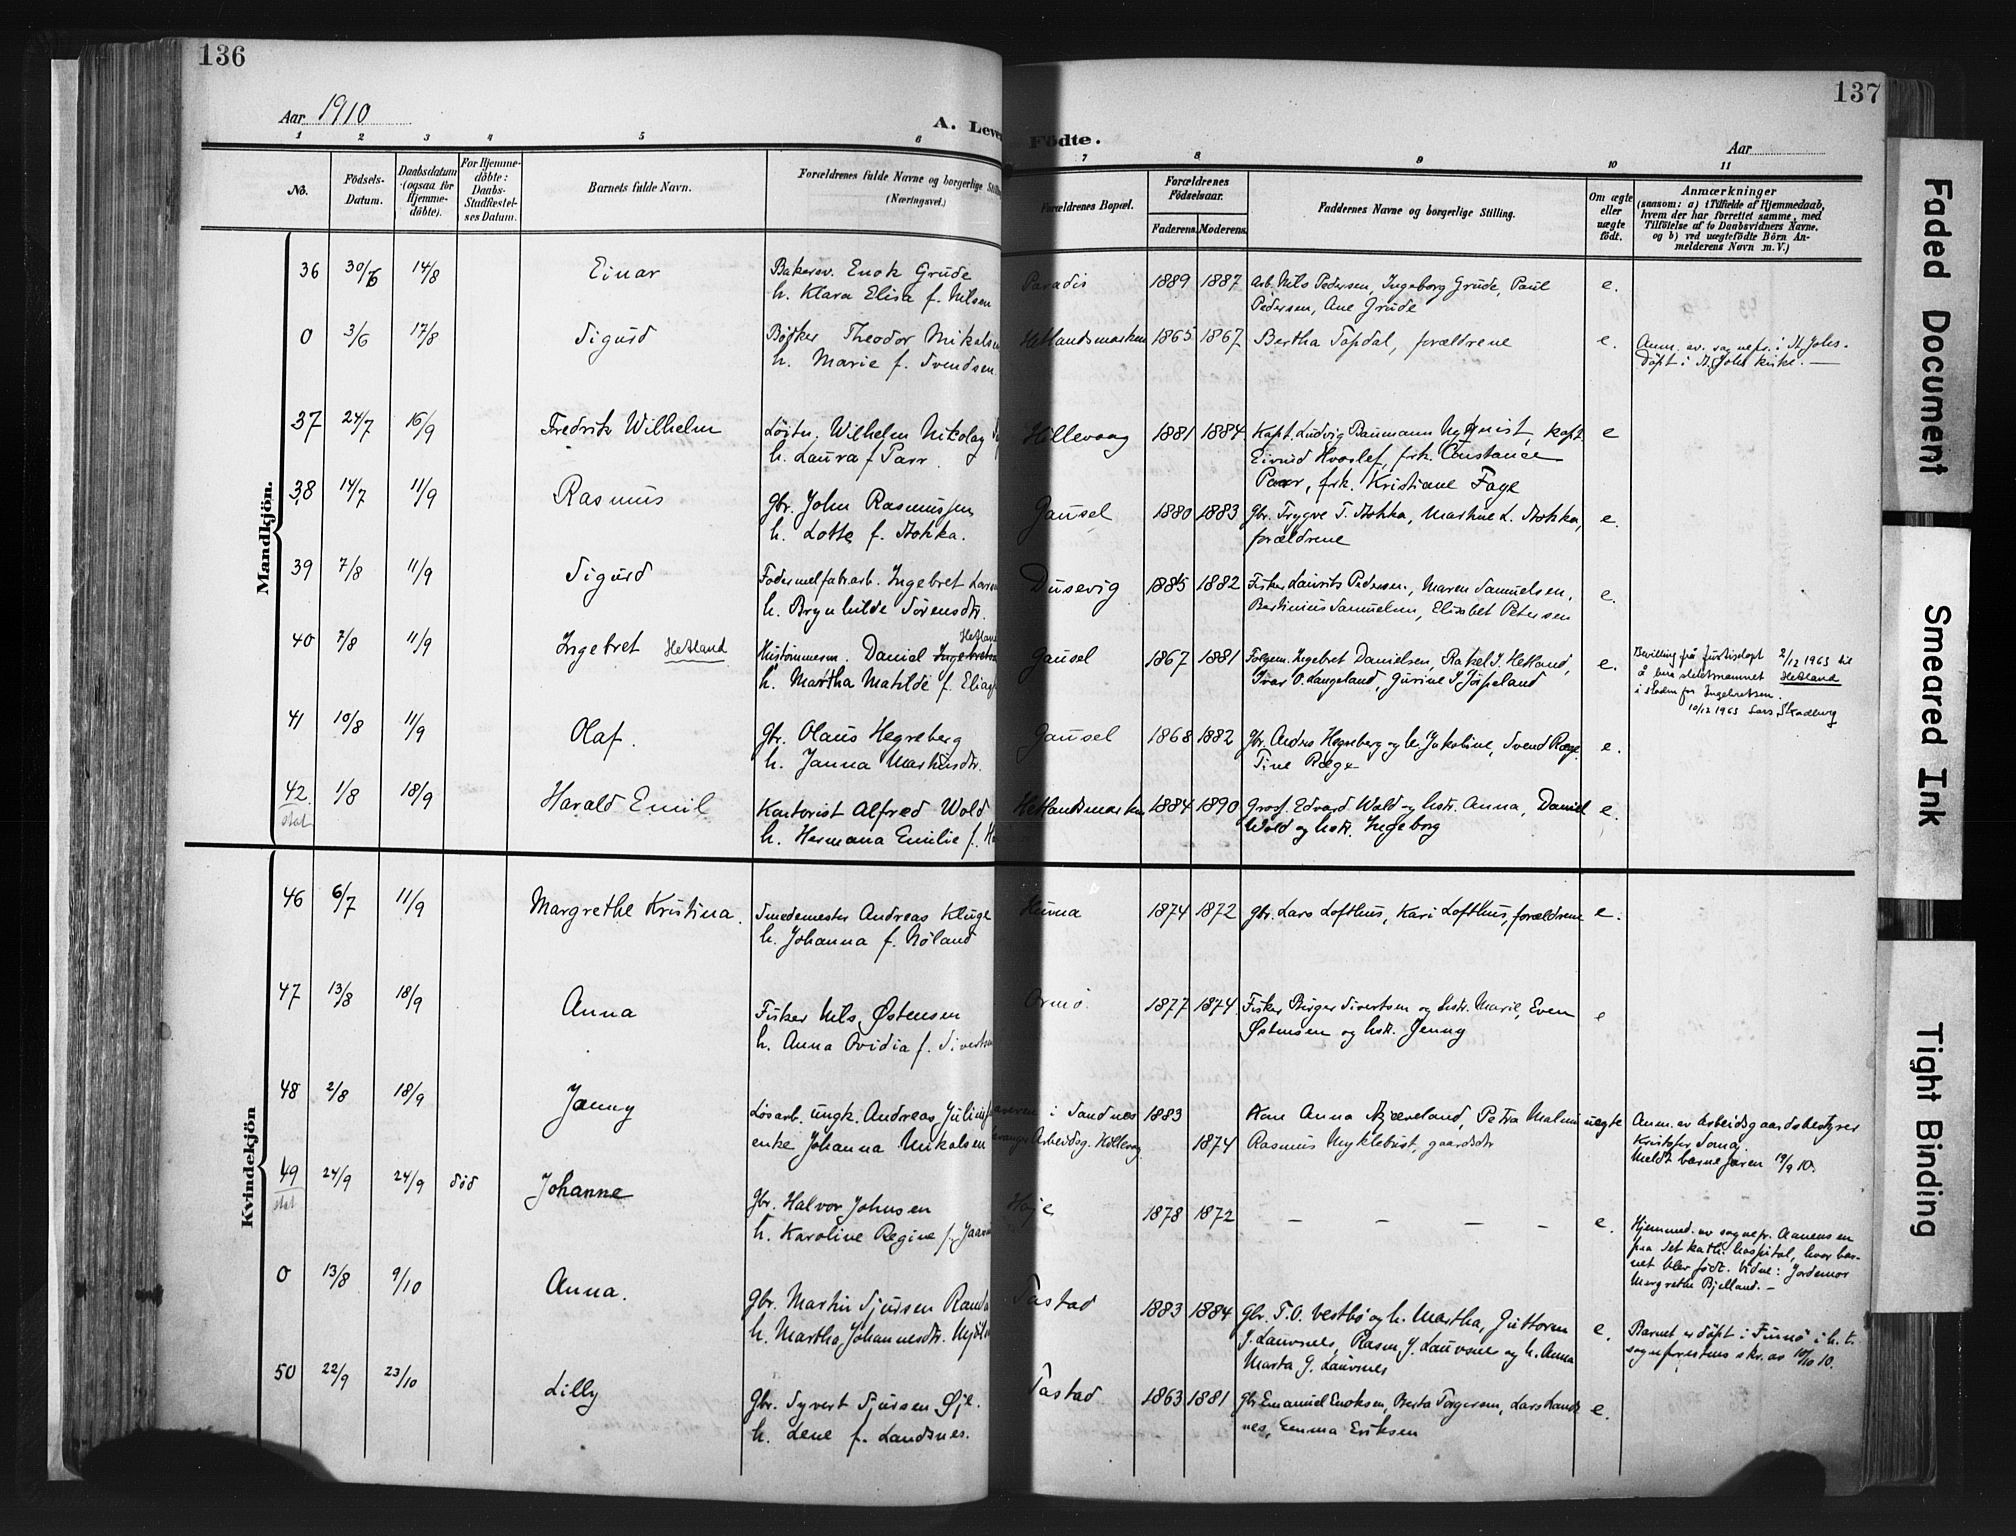 136
137
Aar 1910
A. Leve
Födte.
Aar
1 2 3 4 5 6 7 8 9 10 11
No.
Födsels-Datum.
Daabsdatum (ogsaa för Hjemme-döbte).
For Hjemme-döbte: Daabs-Stadfæstel-ses Datum.
Barnets fulde Navn.
Forældrenes fulde Navne og borgerlige Stil
(Næringsvei.)
Forældrenes Bopæl.
Forældrenes Födselsaar.
Faderens. Moderens.
Faddernes Navne og borgerlige Stilling.
Om ægte eller uægte födt.
Anmærkninger
(saasom: a) i Tilfælde af Hjemmedaab,
hvem der har forrettet samme, med
Tilföielse af to Daabsvidners Navne.
og b) ved uægtefödte Börn An-
melderens Navn m. V.)
Mandkjön.
36 30/6 14/8 Einar Bakersv. Enok Grude Paradis 1889 1887 Arb. Nils Pedersen, Ingeborg Grude, Paul e.
h. Klara Elisa f. Nilsen Pedersen, Ane Grude
0 3/6 17/8 Sigurd Bødker Theodor Mikalse Hetlandsmarken 1865 1867 Bertha Topdal, forældrene e. Anm. av. sognepr. i St. Johs.
h. Marie f. Svendsen Døpt i St. Johs kirke. —
37 24/7 16/9 Fredrik Wilhelm Løitn. Wilhelm Nikolay Hillevaag 1881 1884 Kapt. Ludvig Baumann Nyquist, kapt. e
h. Laura f Parr. Eivind Hvoslef, frk. Constance
Parr, frk. Kristiane Faye
38 14/7 11/9 Rasmus Gbr. John Rasmussen Gausel 1880 1883 Gbr. Trygve T. Stokka, Martine L. Stokka, e.
h. Lotte f. Stokka. forældrene
39 7/8 11/9 Sigurd Fodermelfabr.arb. Ingebret Larse Dusevig 1885 1882 Fisker Laurits Pedersen, Maren Samuelsen, e.
h. Brynhilde Sørensdtr. Bertinius Samuelsen, Elisabet Petersen
40 7/8 11/9 Ingebret Hetland Hustømmerm. Daniel Ingebretse Hetland Gausel 1867 1881 Ingebret Danielsen, Rakel I. Hetland, e. Bevilling frå Justisdept 2/12 1963 til
h. Martha Matilde f. Elias Ivar O. Langeland, Gurine I Jørpeland å bera slektsnamnet Hetland
i staden for Ingebretsen.
10/12 1963 Lars Skadberg
41 10/8 11/9 Olaf. Gbr. Olaus Hegreberg Gausel 1868 1882 Gbr. Andres Hegreberg og h. Jakobine, Svend Ræge e.
h. Janna Markusdtr. Tine Ræge
42. stat 1/8 18/9 Harald Emil Kontorist Alfred Wold Hetlandsmarken 1884 1890 Gros. Edvard Wold og hstr. Anna, Daniel e.
h. Hermana Emilie f. Wold og hstr. Ingeborg
Kvindekjön
46 6/7 11/9 Margrethe Kristina. Smedemester Andreas Kluge Hinna 1874 1872 Gbr. Lars Lofthus, Kari Lofthus, forældrene e.
h. Johanna f. Nøland
47 13/8 18/9 Anna Fisker Nils Østensen Ormø. 1877 1874 Fisker Birger Sivertsen og hstr. Marie, Even e
h. Anna Ovidia f. Siverts Østensen og hstr. Jenny
48 2/8 18/9 Jenny Løsarb. ungk. Andreas Julius i Sandnes 1883 Kone Anna Kjæveland, Petra Malmin uegte Anm. av Arbeidsgaardsbestyrer
enke Johanna Mikalsen Arbeidsg. Hillevag 1874 Rasmus Myklebust, gaardsdr Kristofer Soma,
Meldt barneforen 19/9 10.
49 stat 24/9 24/9 død Johanne Gbr. Halvor Johnsen 1878 1872 — — — — e. Hjemmed. av sognepr. Aanensen
h. Karoline Regine f. Jaas paa det kath. hospital, hvor bar-
net blev født. Vidne: Jordemor
Margrethe Bjelland. —
0 13/8 9/10 Anna. Gbr. Martin Sjursen Randa Tastad 1883 1884 Gbr. T. O. Vestbø og h. Martha, Guttorm e. Barnet er døpt i Finnø i h. t.
h. Martha Johannesdtr. J. Lauvsnes, Rasm. J. Lauvsnes og h. Anna sogneprestens skr. av 10/10 10.
Marta G. Lauvsnes
50 22/9 23/10 Lilly Gbr. Syvert Sjursen Øje. Tastad 1863 1881 Gbr Emanuel Enoksen, Berta Torgersen, Lars Lands e.
h. Lene f. Landsnes. nes, Emma Eriksen
Faded Document
Smeared Ink
Tight Binding